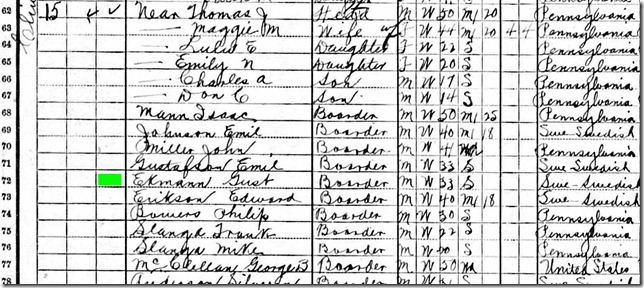 62 15 Near Thomas J Head M W 50 M1 20 Pennsylvania
63 — Maggie M Wife F W 44 M1 20 4 4 Pennsylvania
64 — Lulu E Daughter F W 22 S Pennsylvania
65 — Emily N Daughter F W 20 S Pennsylvania
66 — Charles A Son M W 17 S Pennsylvania
67 — Don C Son M W 14 S Pennsylvania
68 Mann Isaac Boarder M W 50 M1 25 Pennsylvania
69 Johnson Emil Boarder M W 40 M1 18 Swe Swedish
70 Miller John Boarder M W 41 Wd Pennsylvania
71 Gustafson Emil Boarder M W 33 S Swe-Swedish
72 Ekmann Gust Boarder M W 33 S Swe-Swedish
73 Erikson Edward Boarder M W 40 M1 18 Swe Swedish
74 Bowers Philip Boarder M W 30 S Pennsylvania
75 Slanga Frank Boarder M W 22 S Pennsylvania
76 Slanga Mike Boarder M W 20 S Pennsylvania
77 McClellan George B Boarder M W 50 Wd United States
78 Boarder M W S